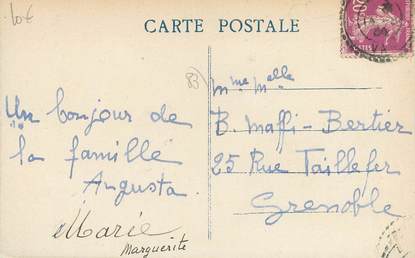 10€
CARTE POSTALE
Un bonjour de
la famille
Augusta
Marie
Marguerite
Mme Melle
B. Maffi-Bertier
25 Rue Taillefer
Grenoble